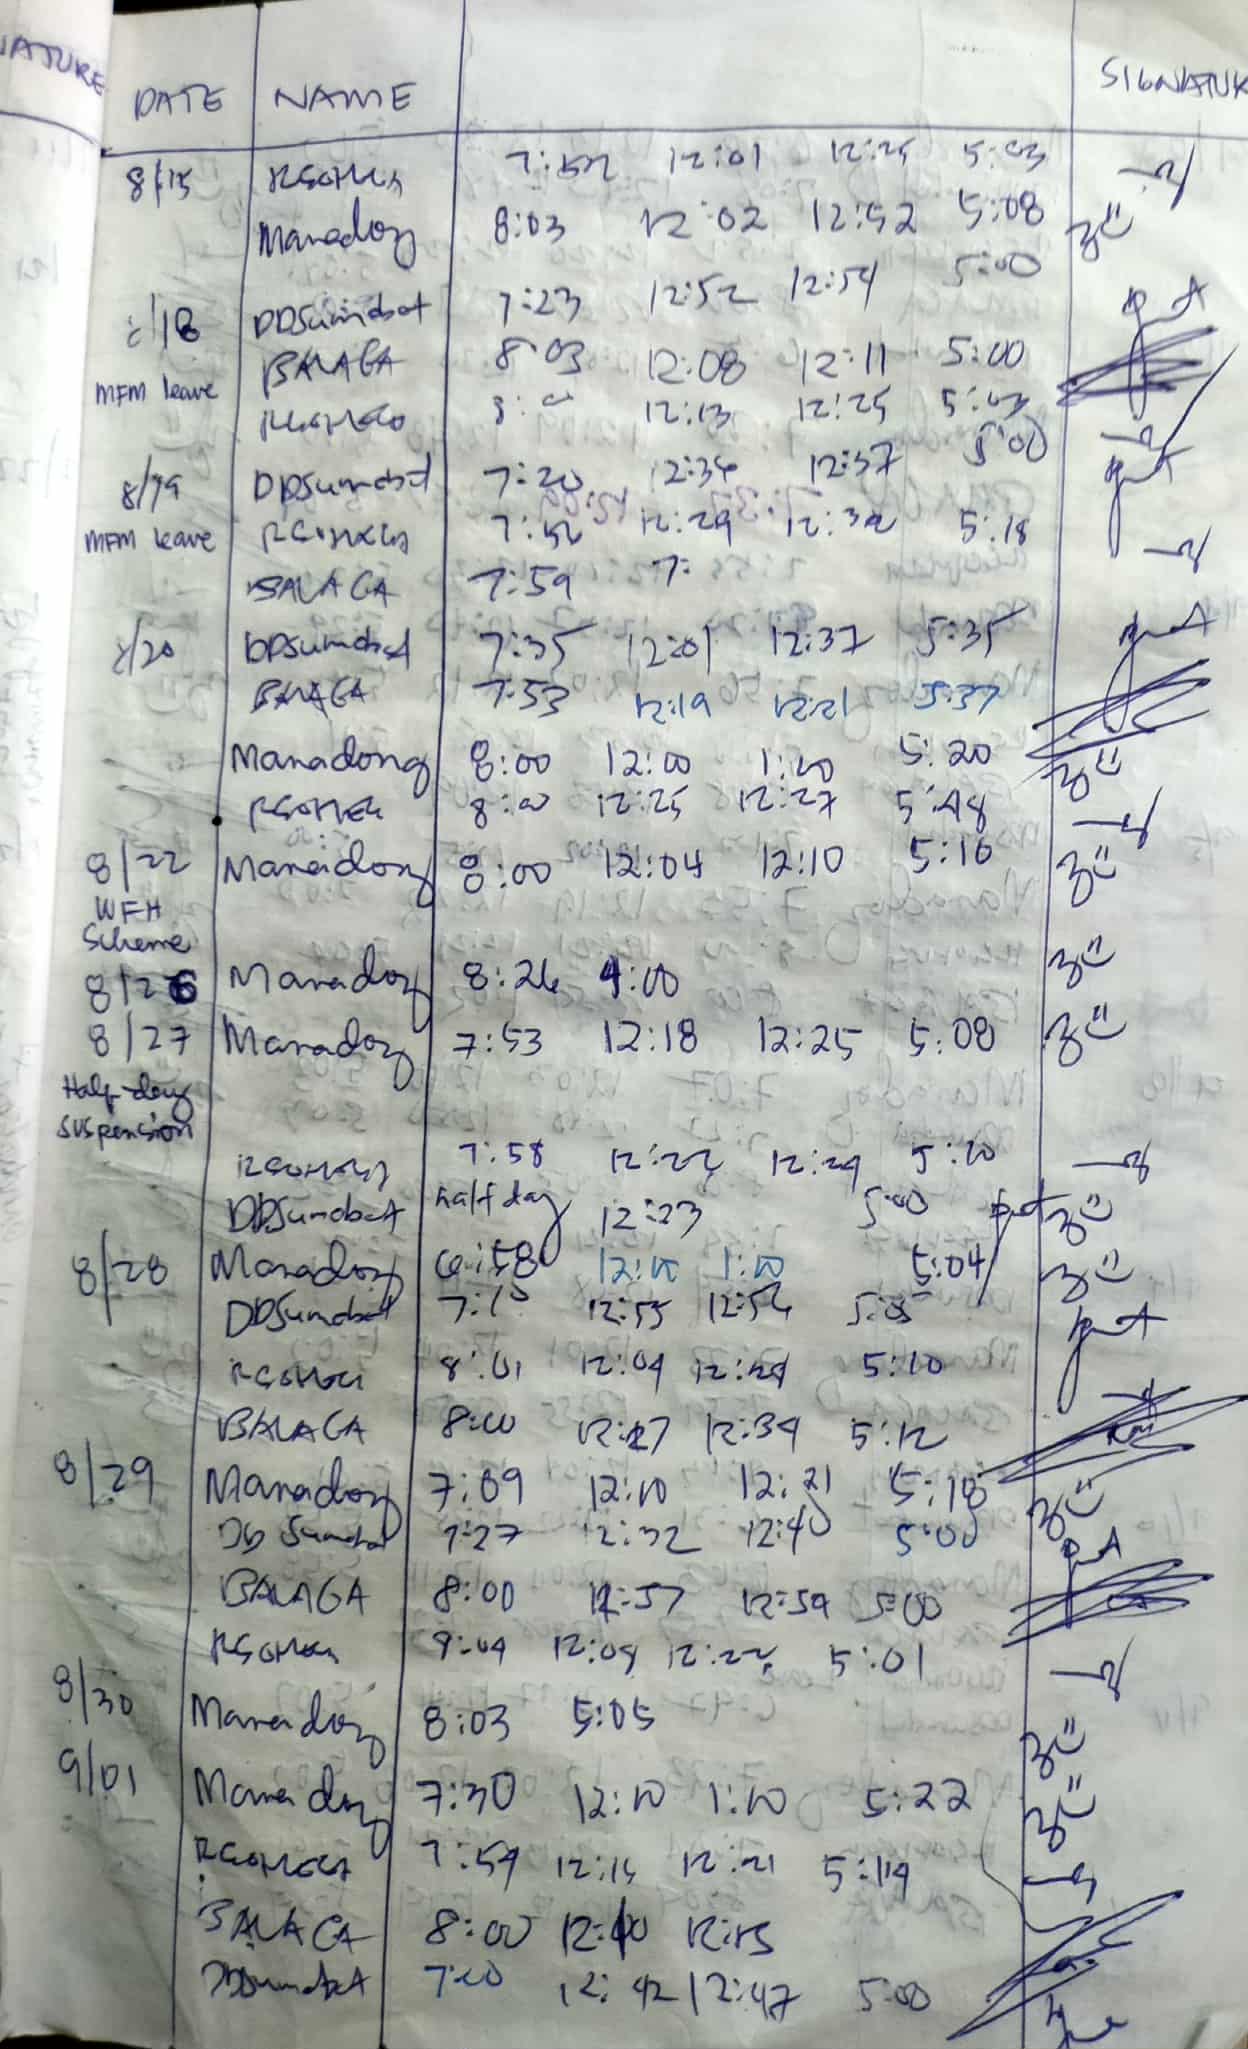 DATE NAME SIGNATUR
8/15 7:52 12:01 12:25 5:03
Manadong 8:03 12:02 12:52 5:08
8/18 DDSumabat 7:23 12:52 12:54 5:00
BALAGA 8:03 12:08 12:11 5:00
MFM leave 12:13 12:25 5:03
8/19 DDSumabat 7:20 12:36 12:37 5:00
MFM leave 7:52 12:29 12:32 5:18
BALAGA 7:59 7:
8/20 DDSumabat 7:35 12:01 12:37 5:35
BALAGA 7:53 12:19 12:21 5:37
Manadong 8:00 12:00 1:00 5:20
8:00 12:25 12:27 5:48
8/22 Manadong 8:00 12:04 12:10 5:16
WFH
Scheme
8/26 Manadong 8:26 4:00
8/27 Manadong 7:53 12:18 12:25 5:08
Half-day
suspension
7:58 12:22 12:29 5:10
DDSumabat half day 12:23 5:00
8/28 Manadong 6:58 12:10 1:10 5:04
DDSumabat 12:55 12:56 5:05
8:01 12:09 12:29 5:10
BALAGA 8:00 12:27 12:34 5:12
8/29 Manadong 7:09 12:10 12:21 5:18
DDSumabat 7:27 12:32 12:40 5:00
BALAGA 8:00 12:57 12:59 5:00
12:09 12:22 5:01
8/30 Manadong 8:03 5:05
9/01 Manadong 7:30 12:10 1:10 5:22
7:59 12:15 12:21 5:14
BALAGA 8:00 12:10 12:13
DDSumabat 7:00 12:42 12:47 5:00